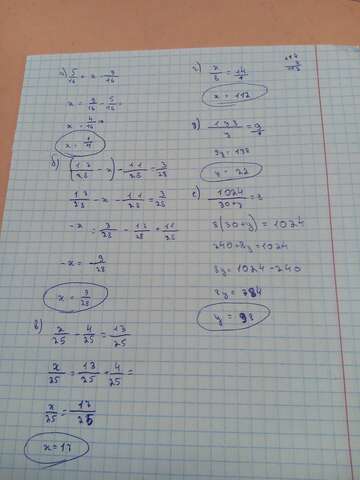 а) 5/16 + x = 9/16
x = 9/16 - 5/16 =
x = 4/16 =
x = 1/4
б) (17/25 - x) - 11/25 = 3/25
17/25 - x - 11/25 = 3/25
-x = 3/25 - 17/28 + 11/25
-x = 9/28
x = 9/28
в) x/25 - 4/25 = 13/25
x/25 = 13/25 + 4/25 =
x/25 = 17/25
x = 17
г) x/8 = 14/1
x = 112
д) 198/y = 9/1
9y = 198
y = 22
е) 1024/30+y = 8
8(30+y) = 1024
240+8y = 1024
8y = 1024-240
8y = 784
y = 98